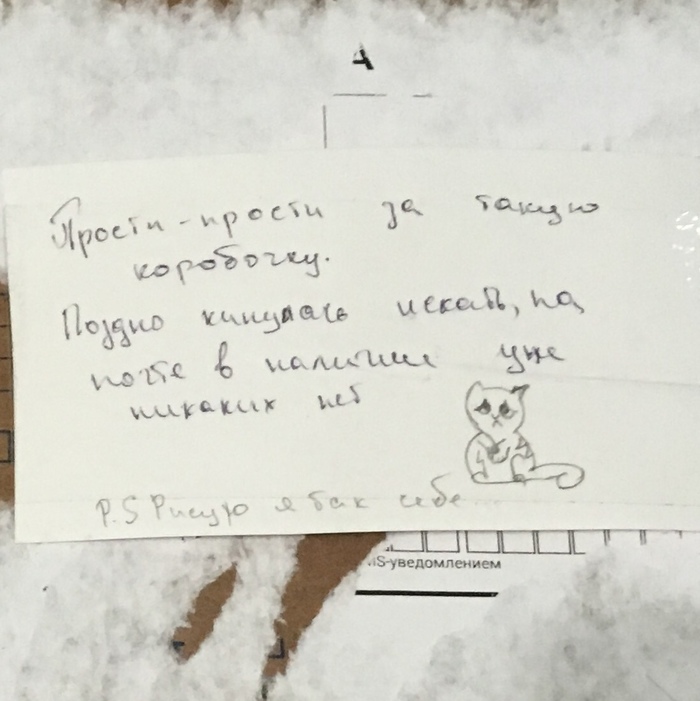 Прости-прости за такую
коробочку.
Поздно кинулась искать, на
почте в наличии уже
никаких нет
P.S Рисую я так себе...
S-уведомлением